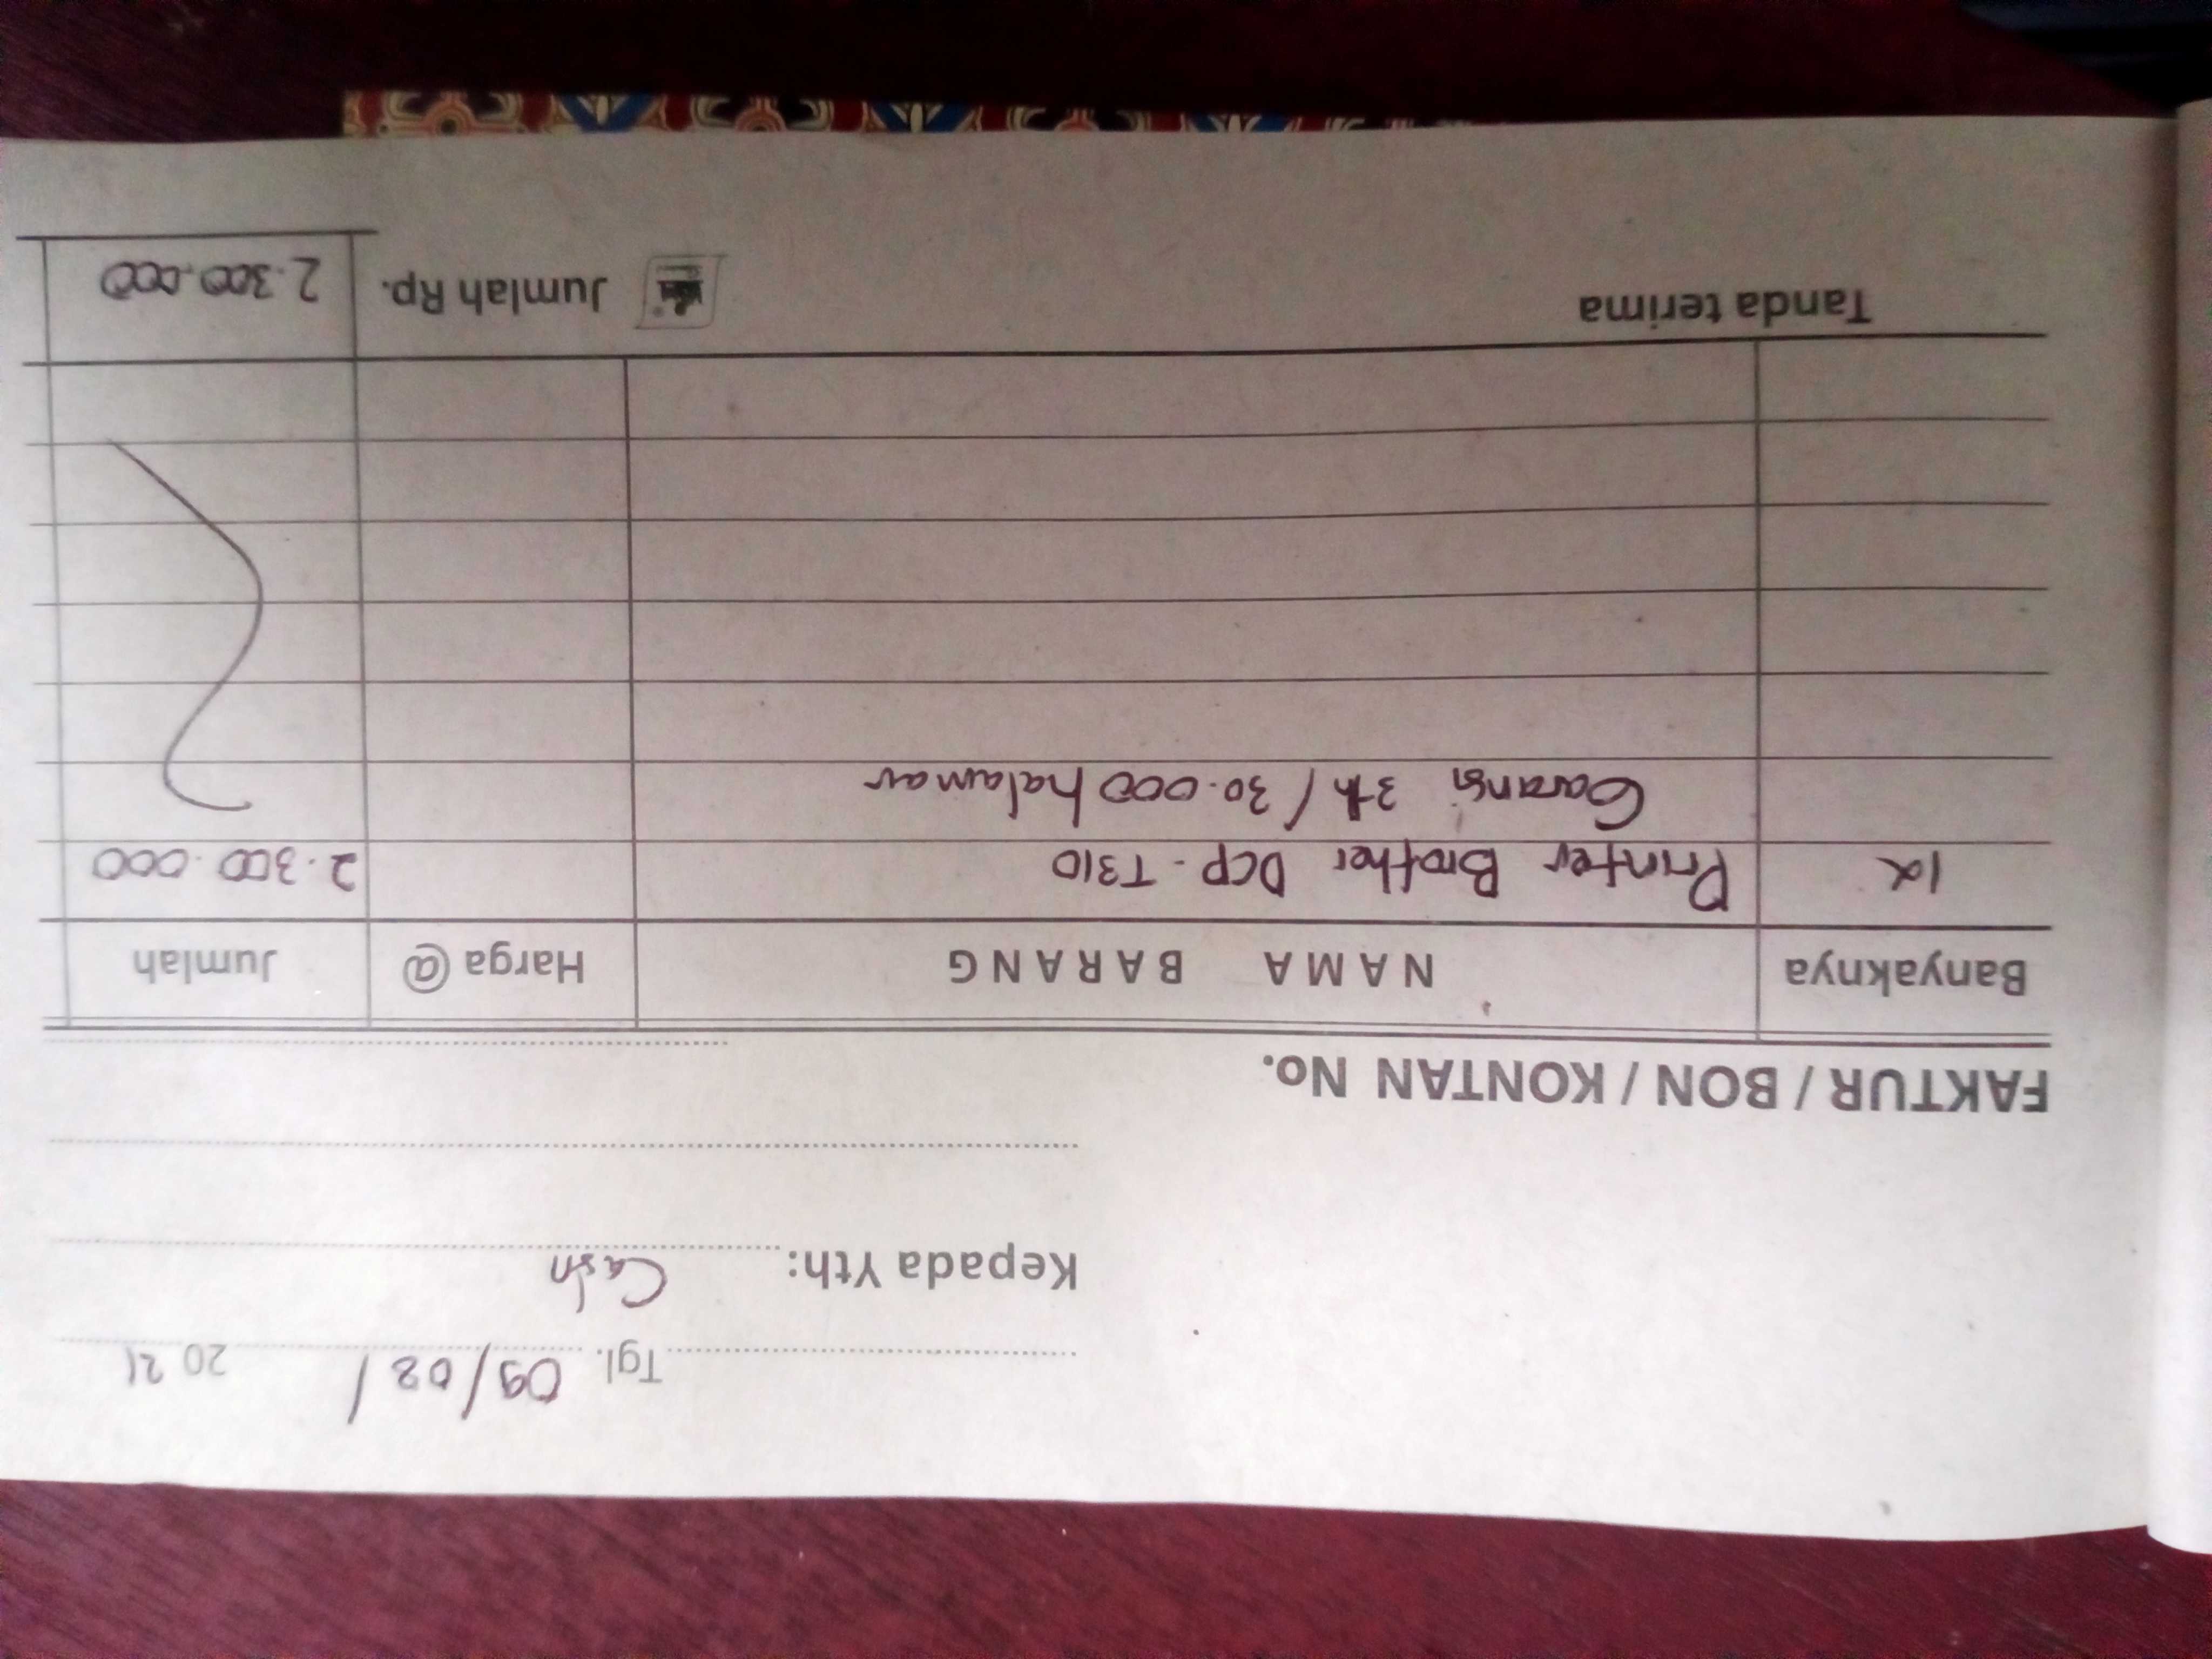 Tgl. 09/02/ 2021
Kepada Yth: Cash
FAKTUR / BON / KONTAN No.
Banyaknya NAMA BARANG Harga @ Jumlah
Printer Brother DCP - T310 2.300.000
Garansi 3th / 30.000 halaman
Tanda terima Jumlah Rp. 2.300.000